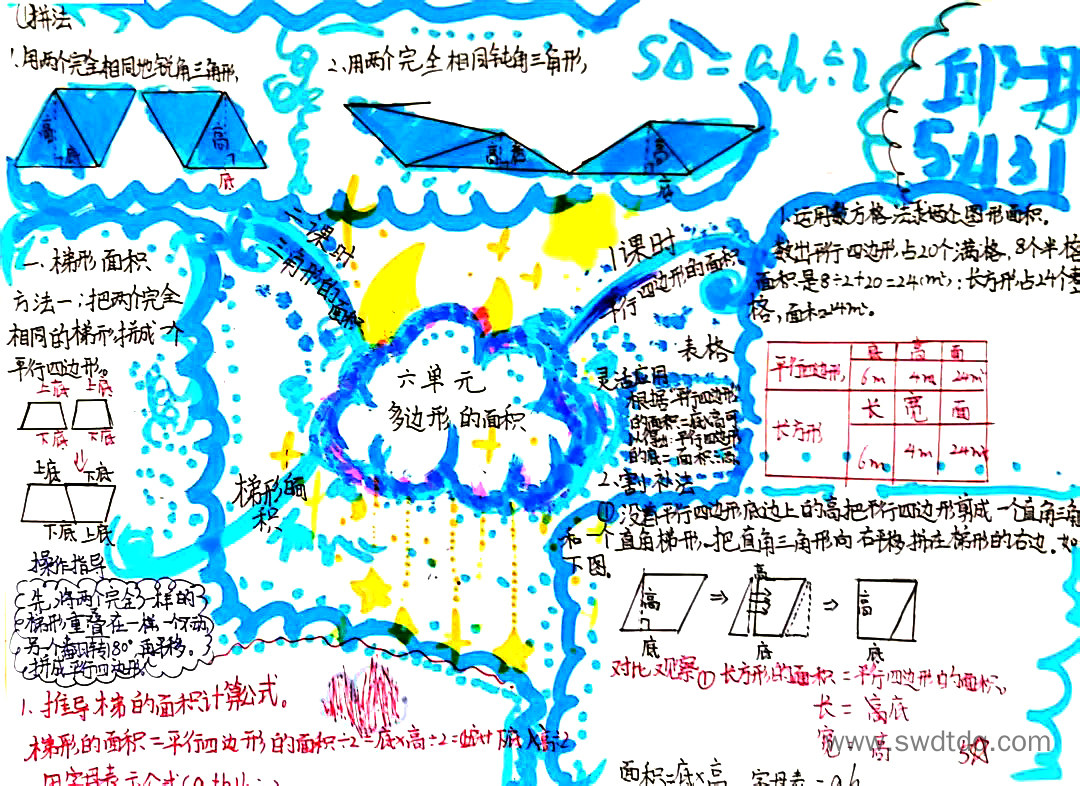 ①拼法
1.用两个完全相同地锐角三角形,
2.用两个完全相同钝角三角形,
S△=ah÷2
高
底
高
底
高
底
高
底
54131
二课时
三角形的面积
1课时
平行四边形的面积
六单元
多边形的面积
梯形面积
一.梯形面积
方法一:把两个完全
相同的梯形拼成一个
平行四边形。
上底 上底
下底 下底
上底 下底
下底 上底
操作指导
先将两个完全一样的
梯形重叠在一样一个不动
另一个翻转180°再平移。
拼成平行四边形
1.推导梯的面积计算公式。
梯形的面积=平行四边形的面积÷2=底×高÷2=(上底+下底)×高÷2
1.运用数方格法求两个图形面积。
数出平行四边形占20个满格,8个半格
面积是8÷2+20=24(m²):长方形占24个整
格,面积24m²。
表格
底 高 面
平行四边形 6m 4m 24m²
长方形 长 宽 面
6m 4m 24m²
灵活应用
根据"平行四边形
的面积=底×高可
以得出:平行四边形
的底=面积÷高
2.割补法
①沿着平行四边形底边上的高把平行四边形剪成一个直角三角
和一个直角梯形、把直角三角形向右平移拼在梯形的右边.如
下图。
高 ⇒ 高 ⇒ 高
底 底 底
对比观察①长方形的面积=平行四边形的面积。
长=底
宽=高
www.swdtdq.com
面积=底×高 字母表=ah